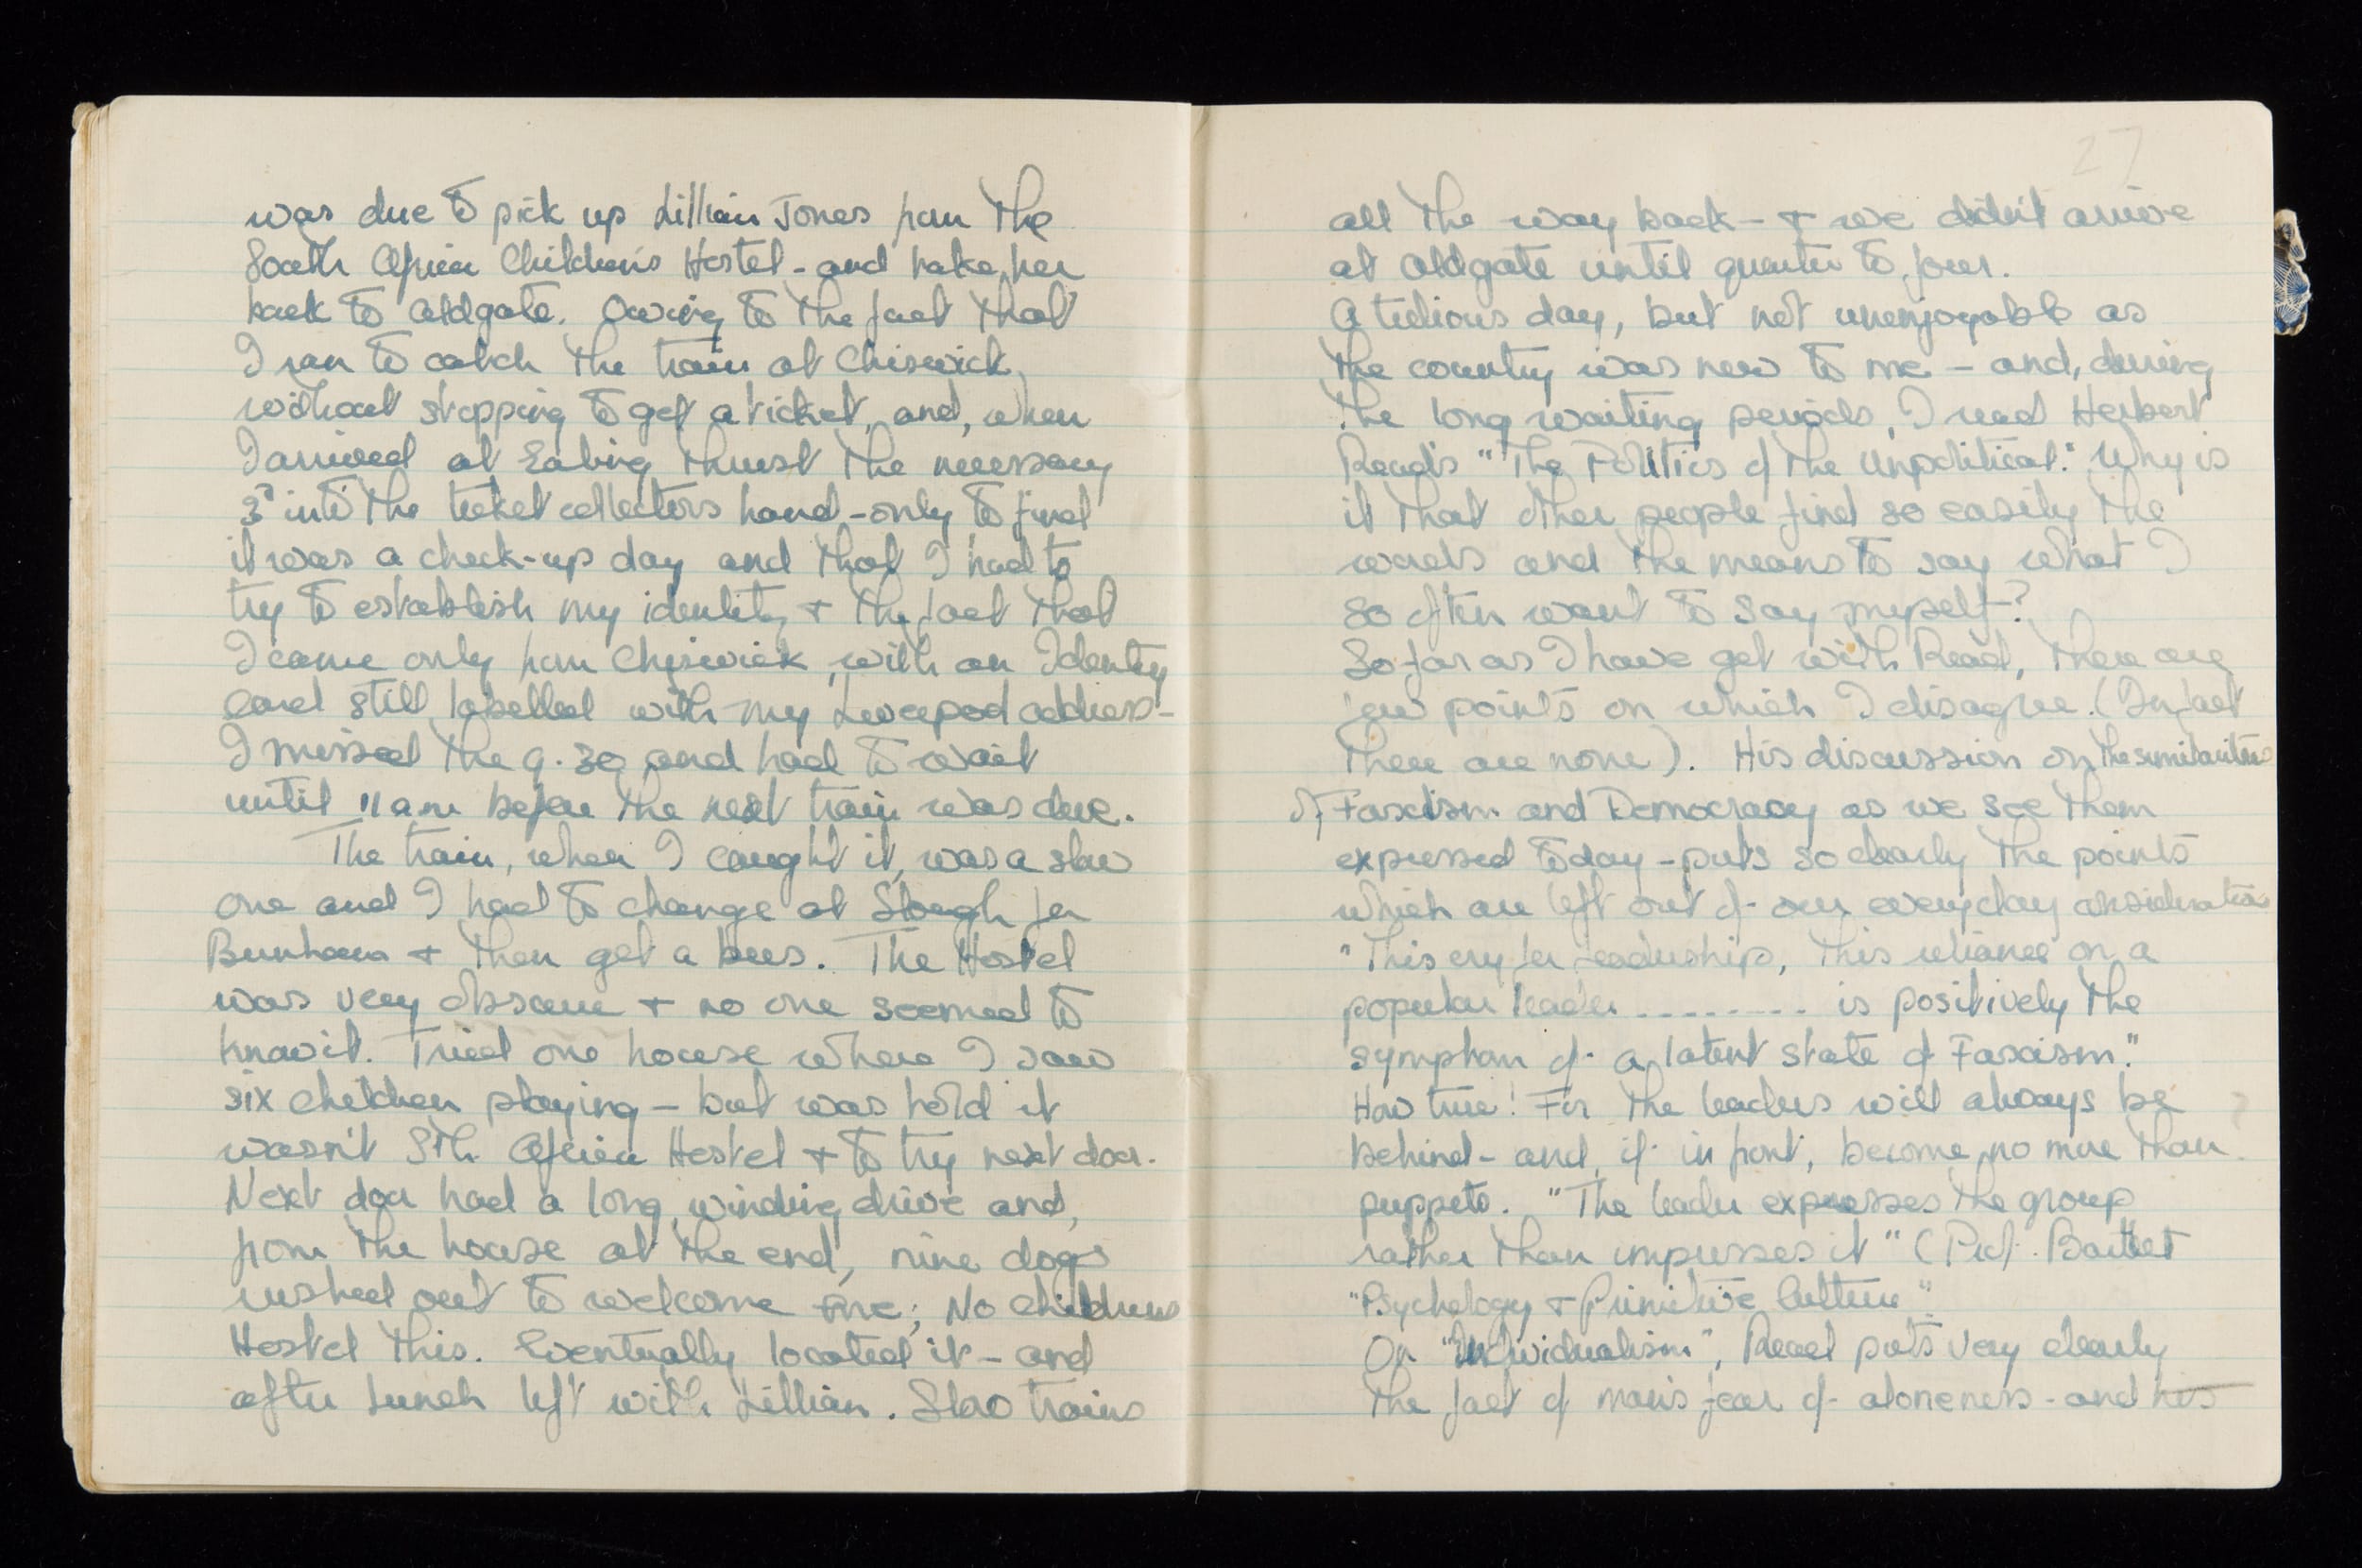 was due to pick up Lillian Jones from the
South African Children's Hostel - and take her
back to Aldgate. Owing to the fact that
I ran to catch the train at Chiswick,
without stopping to get a ticket, and, when
I arrived at Ealing thrust the necessary
3d into the ticket collectors hand - only to find
it was a check-up day and that I had to
try to establish my identity + the fact that
I came only from Chiswick, with an Identity
card still labelled with my Liverpool address -
I missed the 9.30 and had to wait
until 11 am before the next train was due.
The train, when I caught it, was a slow
one and I had to change at Slough for
Burnham + then get a bus. The Hostel
was very obscure + no one seemed to
know it. Tried one house where I saw
six children playing - but was told it
wasn't Sth. African Hostel + to try next door.
Next door had a long, winding drive and,
from the house at the end, nine dogs
rushed out to welcome me; No childrens
Hostel this. Eventually located it - and
after lunch left with Lillian. Slow trains
27
all the way back - + we didn't arrive
at Aldgate until quarter to four.
A tedious day, but not unenjoyable as
the country was new to me - and, during
the long waiting periods, I read Herbert
Read's "The Politics of the Unpolitical." Why is
it that other people find so easily the
words and the means to say what I
so often want to say myself?
So far as I have got with Read, there are
few points on which I disagree. (In fact
there are none). His discussion on the similarities
of Fascism and Democracy as we see them
expressed today - puts so clearly the points
which are left out of our everyday considerations
"This cry for leadership, this reliance on a
popular leader ......... is positively the
symptom of a latent state of Fascism."
How true! For the leaders will always be
behind - and, if in front, become no more than
puppets. "The leader expresses the group
rather than impresses it" (Prof. Bartlet
"Psychology + Primitive Culture"
On "Individualism", Read puts very clearly
the fact of man's fear of aloneness - and his